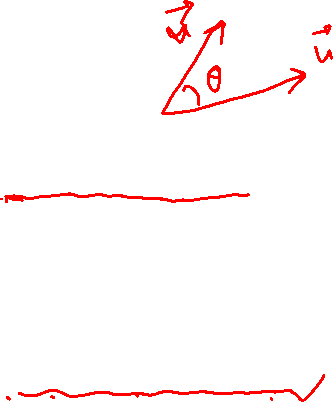 v⃗ u⃗
θ